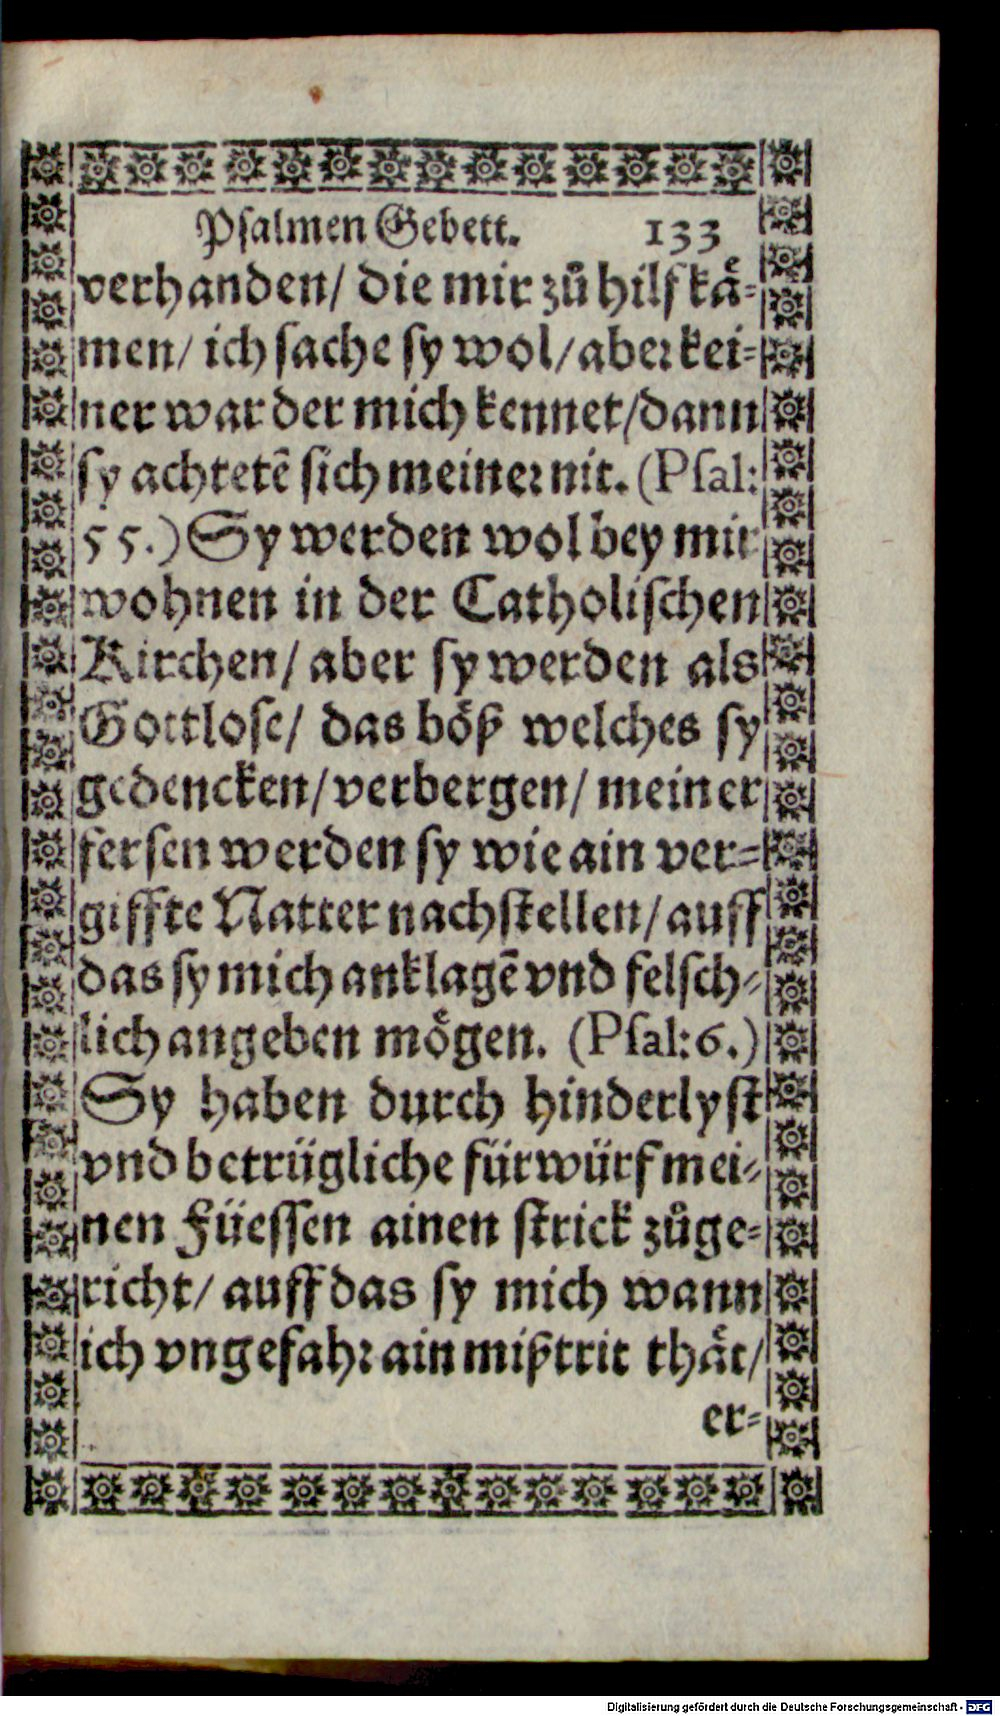 Psalmen Gebett. 133
verhanden/ die mir zů hilf kaͤ⸗
men/ ich sache sy wol/ aber kei⸗
ner war der mich kennet/ dann
sy achtetē sich meiner nit. (Psal:
55.) Sy werden wol bey mir
wohnen in der Catholischen
Kirchen/ aber sy werden als
Gottlose/ das boͤß welches sy
gedencken/ verbergen/ meiner
fersen werden sy wie ain ver⸗
giffte Natter nachstellen/ auff
das sy mich anklagē vnd felsch⸗
lich angeben moͤgen. (Psal:6.)
Sy haben durch hinderlyst
vnd betrügliche fürwürf mei⸗
nen Füessen ainen strick zůge⸗
richt/ auff das sy mich wann
ich vngefahr ain mißtrit thaͤt/
er⸗
Digitalisierung gefördert durch die Deutsche Forschungsgemeinschaft - DFG